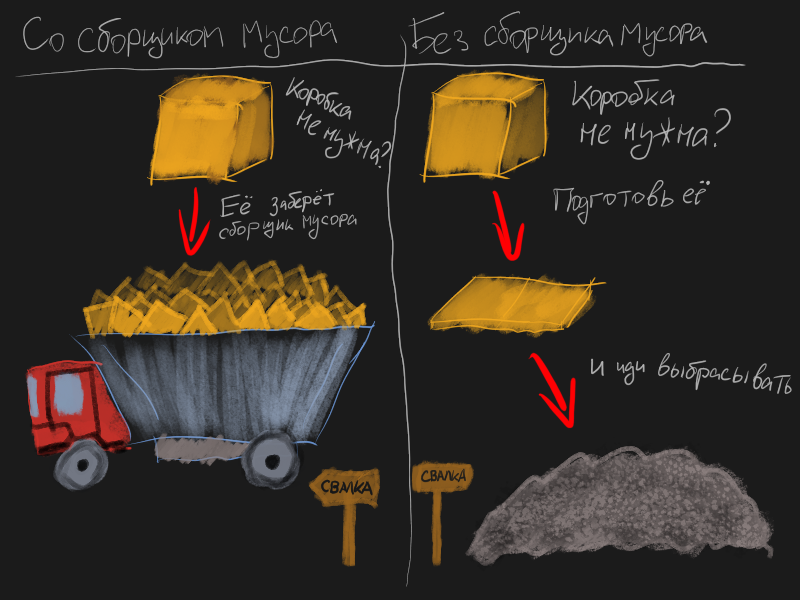 Со сборщиком мусора
Коробка
не нужна?
Её заберёт
сборщик мусора
СВАЛКА
Без сборщика мусора
Коробка
не нужна?
Подготовь её
и иди выбрасывать
СВАЛКА